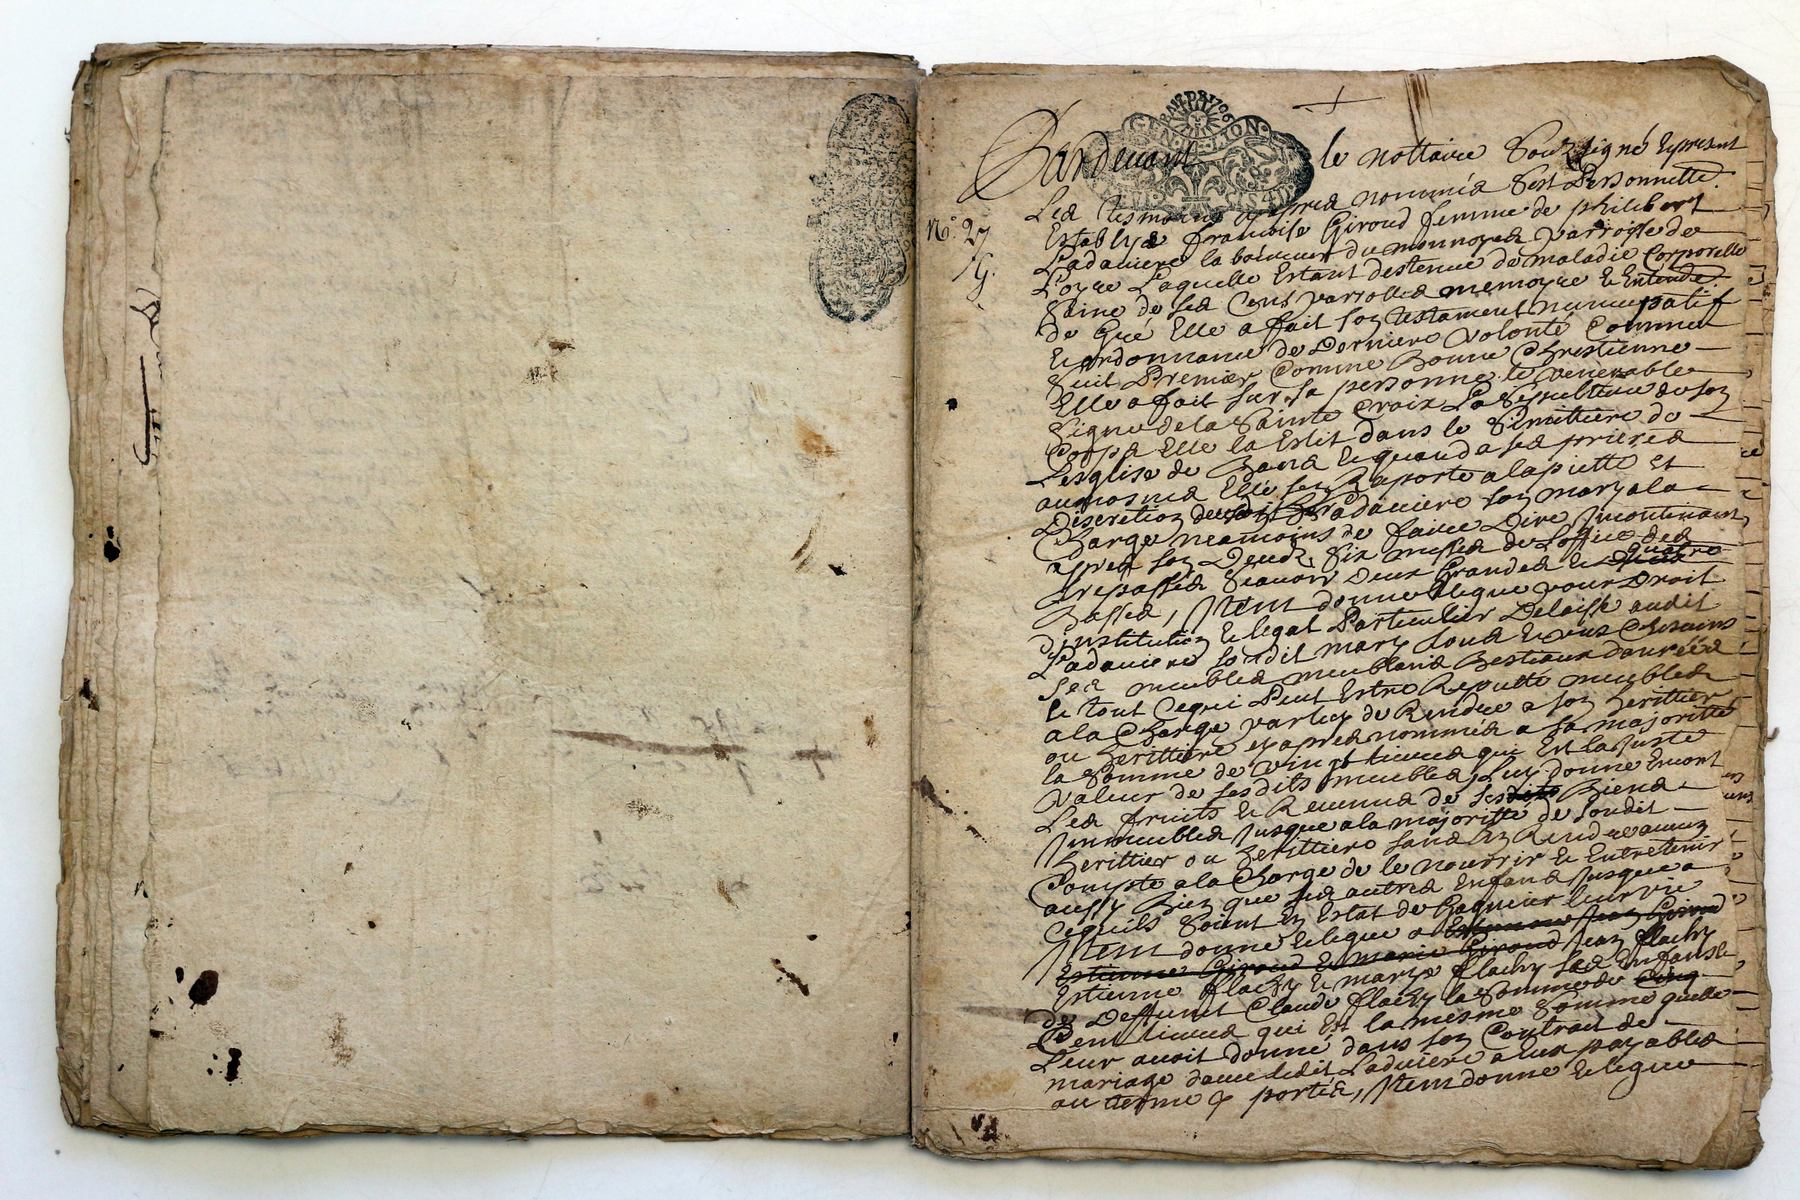 GEN LION
Pardevant le nottaire Soubsigné Et present
Les tesmoins apprea nommés S'est Personnelle.
No. 27
Establye francoise Giroud femme de philibert
Ladaviere laboureur du mounoyed Parroisse de
Laquelle Estant destenue de maladie Corporelle
Saine de sea Cens parrolles memoyre Et Entende.
de Gré Elle a fait son testament nuncupatif
Et ordonnance de Derniere Volonté Comme
Suit Premier Comme Bonne Chrestienne
Elle a fait sur sa personne le venerable
Signe de la Sainte Croix La Sepulture de son
Corps Elle la Eslit dans le Simittiere de
L'esglise de Et quand a sea prierea
aumosnea Elle sen Raporte a la piette et
Discretion dudit Ladaviere son mary a la
Charge neamoins de faire Dire Jncontinant
aprea son Deceds Six messea de Loffice des
trepassea Scavoir Deux Grandea Et quatre
Bassea, Jtem donne Et legue pour Droit
d'institution Et legat Particulier Delaisse audit
Ladaviere sondit mary tous Et uns Chacuns
sea meublea meublans Bestiaux danréea
Et tout Ce qui Peut Estre Reputte meublea
a la Charge par luy de Rendre a son herittier
ou herittiere cy aprea nommés a sa majoritte
la Somme de vingt livrea qui Est la Juste
valeur de sesdits meublea, luy donne Encore
Lea fruits Et Revenua de ses Biena
Jmmeublea Jusque a la majoritte de sondit
herittier ou herittiere sans En Rendre aucun
Compte a la Charge de le nourrir Et Entretenir
aussy Bien que sea autrea Enfana Jusque a
Ce quils Soient En Estat de Gagner leur vie
Jtem donne Et legue a Estienne Jean Giroud
Estienne Giroud Et marie Giroud Jean flachy
Estienne flachy Et marye flachy sea Enfans Et
de Deffunct Claude flachy la Somme de Cinq
Cent livrea qui Est la mesme Somme quelle
Leur avoit donné dans son Contrait de
mariage avec ledit Ladaviere a Eux payablea
au terme y portéa, Jtem donne Et legue